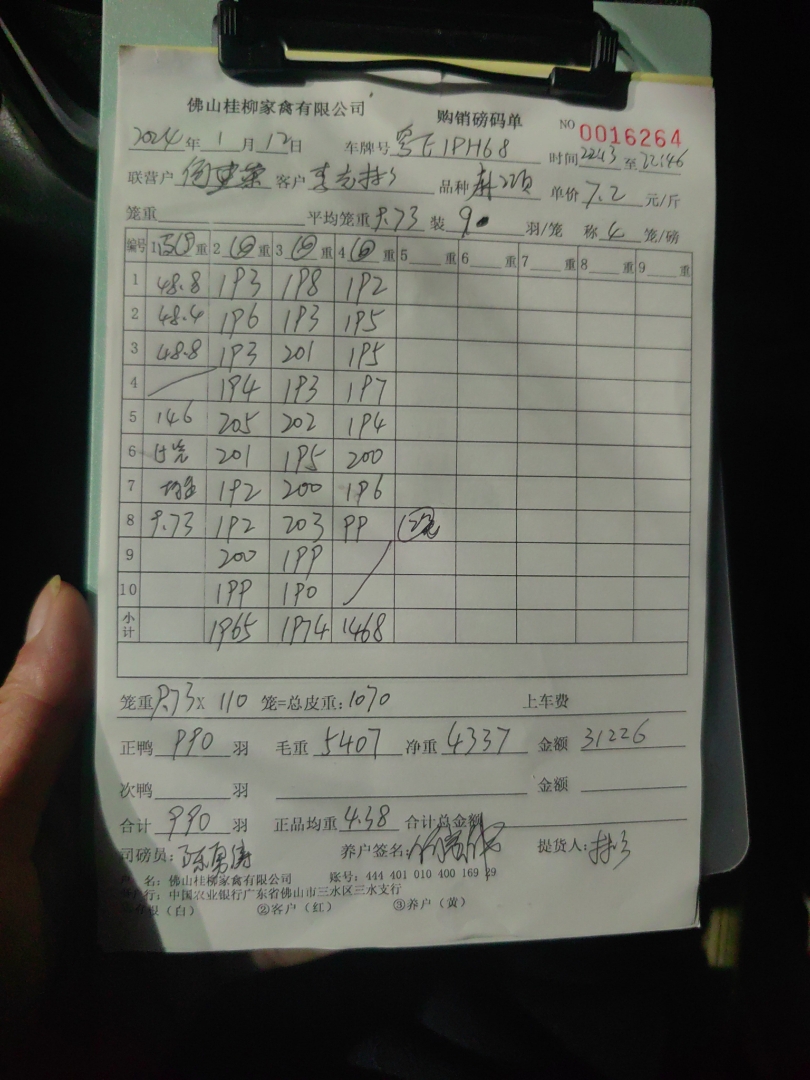 佛山桂柳家禽有限公司 购销磅码单 NO 0016264
2024年1月12日 车牌号 粤E1PH68 时间 2243 至 22:46
联营户 客户 李志 品种 麻 项 单价 7.2 元/斤
笼重 平均笼重 9.73 装 9 羽/笼 称 4 笼/磅
编号 1 重 2 重 3 重 4 重 5 重 6 重 7 重 8 重 9 重
1 48.8 193 198 192
2 48.4 196 193 195
3 48.8 193 201 195
4 194 193 197
5 146 205 202 194
6 201 195 200
7 192 200 196
8 9.73 192 203 99
9 200 199
10 199 190
小计 1965 1974 1468
笼重 9.73 X 110 笼=总皮重: 1070 上车费
正鸭 990 羽 毛重 5407 净重 4337 金额 31226
次鸭 羽 金额
合计 990 羽 正品均重 4.38 合计总金额
司磅员: 陈勇涛 养户签名: 提货人:
名: 佛山桂柳家禽有限公司 账号: 444 401 010 400 169 29
行: 中国农业银行广东省佛山市三水区三水支行
(白) ②客户(红) ③养户(黄)